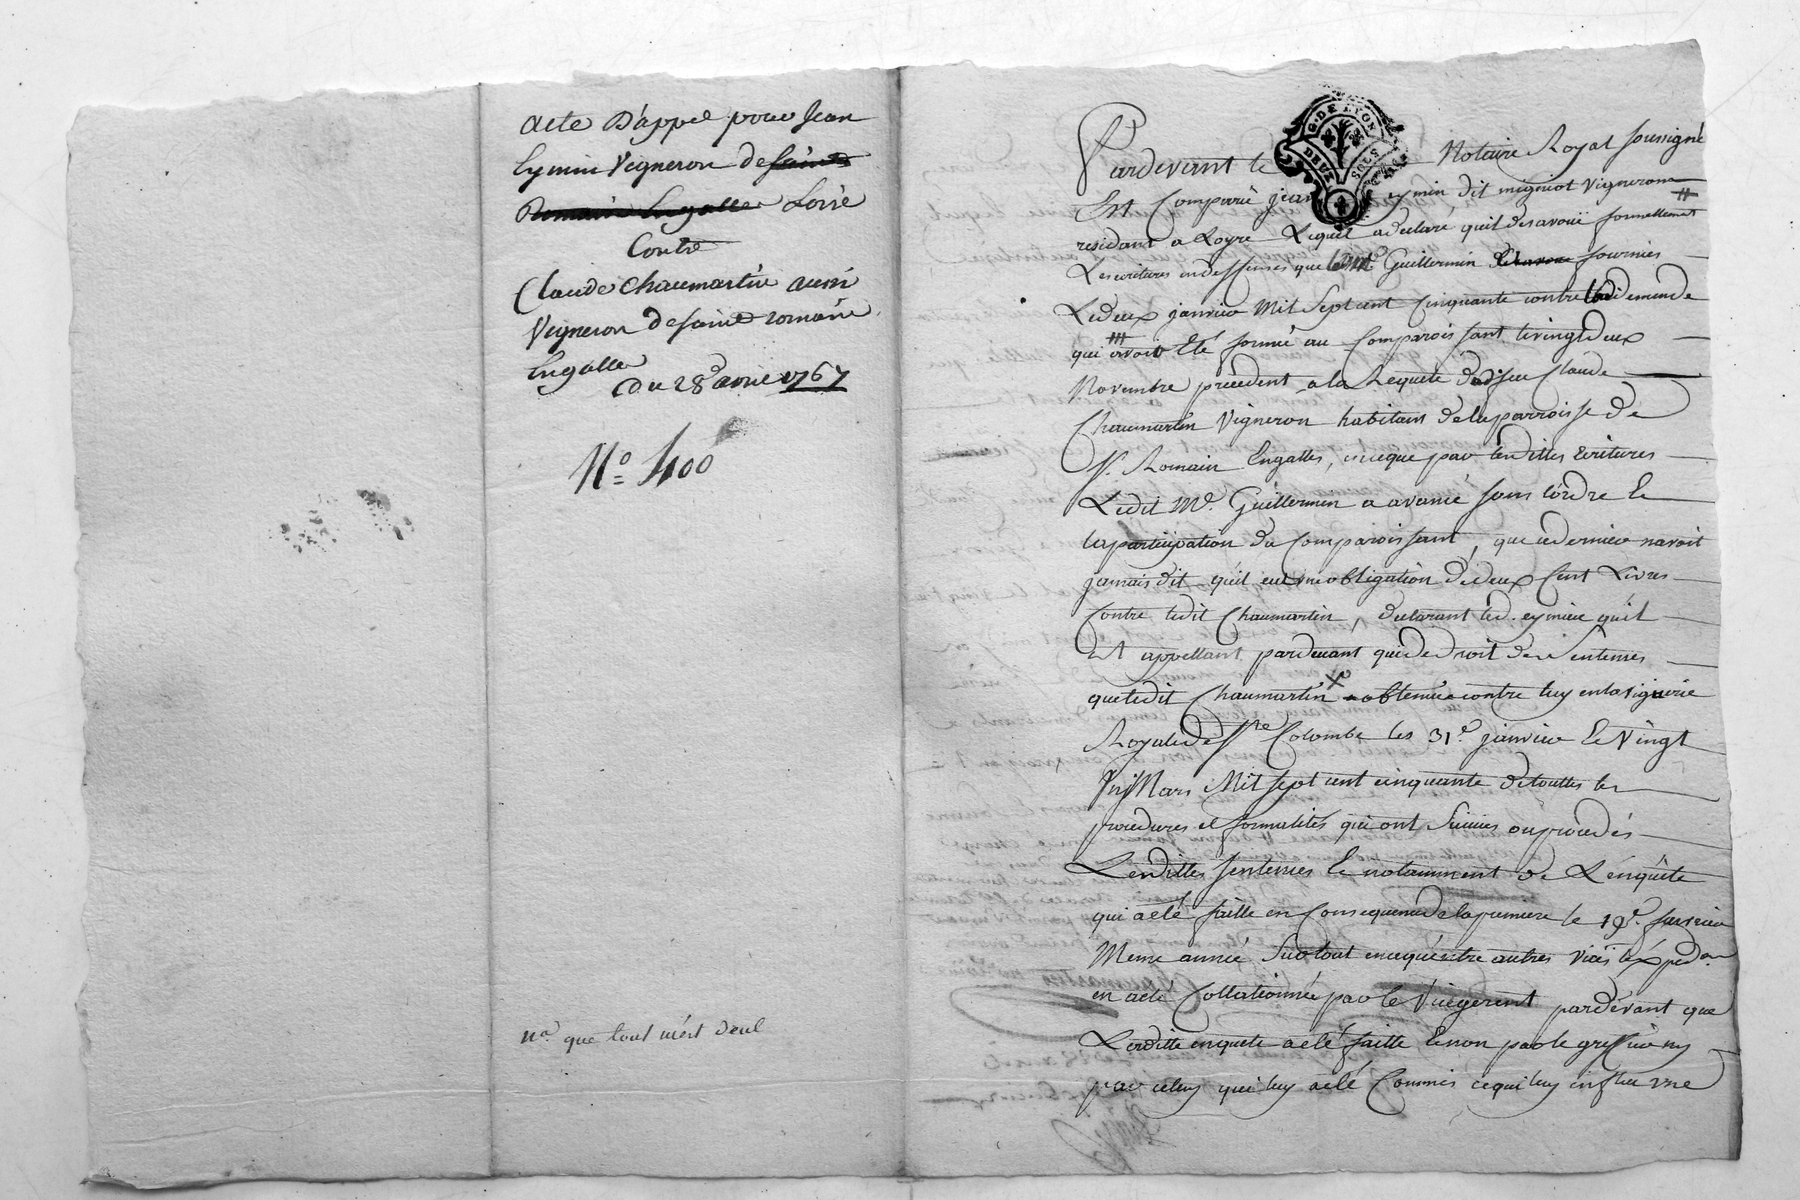 acte D'appel pour Jean
Eymin Vigneron de saint
Romain Engalle Loire
Contre
Claude Chaumartin aussi
Vigneron de saint romain
Engalle
Du 28e avril 1767
No. 400
na. que tout n'est deul
G. DE LYON
DEUX SOLS
Pardevant le Notaire Royal soussigné
Est Comparu jean Eymin dit migniot Vigneron
residant a Loyre Lequel a declaré qu'il desavoüe formellement
Les ecritures en deffenses que Guillermin fournies
Le deux janvier Mil Sept cent Cinquante contre la demande
qui avoit Eté formée au Comparoissant le vingt deux
Novembre precedent a la Requete dudit feu Claude
Chaumartin Vigneron habitant de la parroisse de
St. Romain Engalles, en ce que par Lesdittes Ecritures
Ledit Me. Guillermin a avancé sans l'ordre Et
la participation du Comparoissant, que ce dernier navoit
jamais dit qu'il eut une obligation de deux Cent Livres
Contre ledit Chaumartin, declarant led. eymin qu'il
Est appellant pardevant qui de droit des Sentences
que ledit Chaumartin a obtenües contre luy en la viguerie
Royale de Ste Colombe les 31e. janvier Et Vingt
Mars Mil sept cent cinquante de touttes les
procedures et formalités qui ont Suivies ou precedés
Lesdittes sentences Et notamment de L'enquête
qui a eté faitte en Consequence de la premiere le 19e. fevrier
Meme année Surtout en ce qu'entre autres vices l'expedon.
en a eté Collationnée par le Vicegerent pardevant que
Laditte enquete a eté faitte Et non par le greffier ny
par celuy qui luy a eté Commis ce qui luy